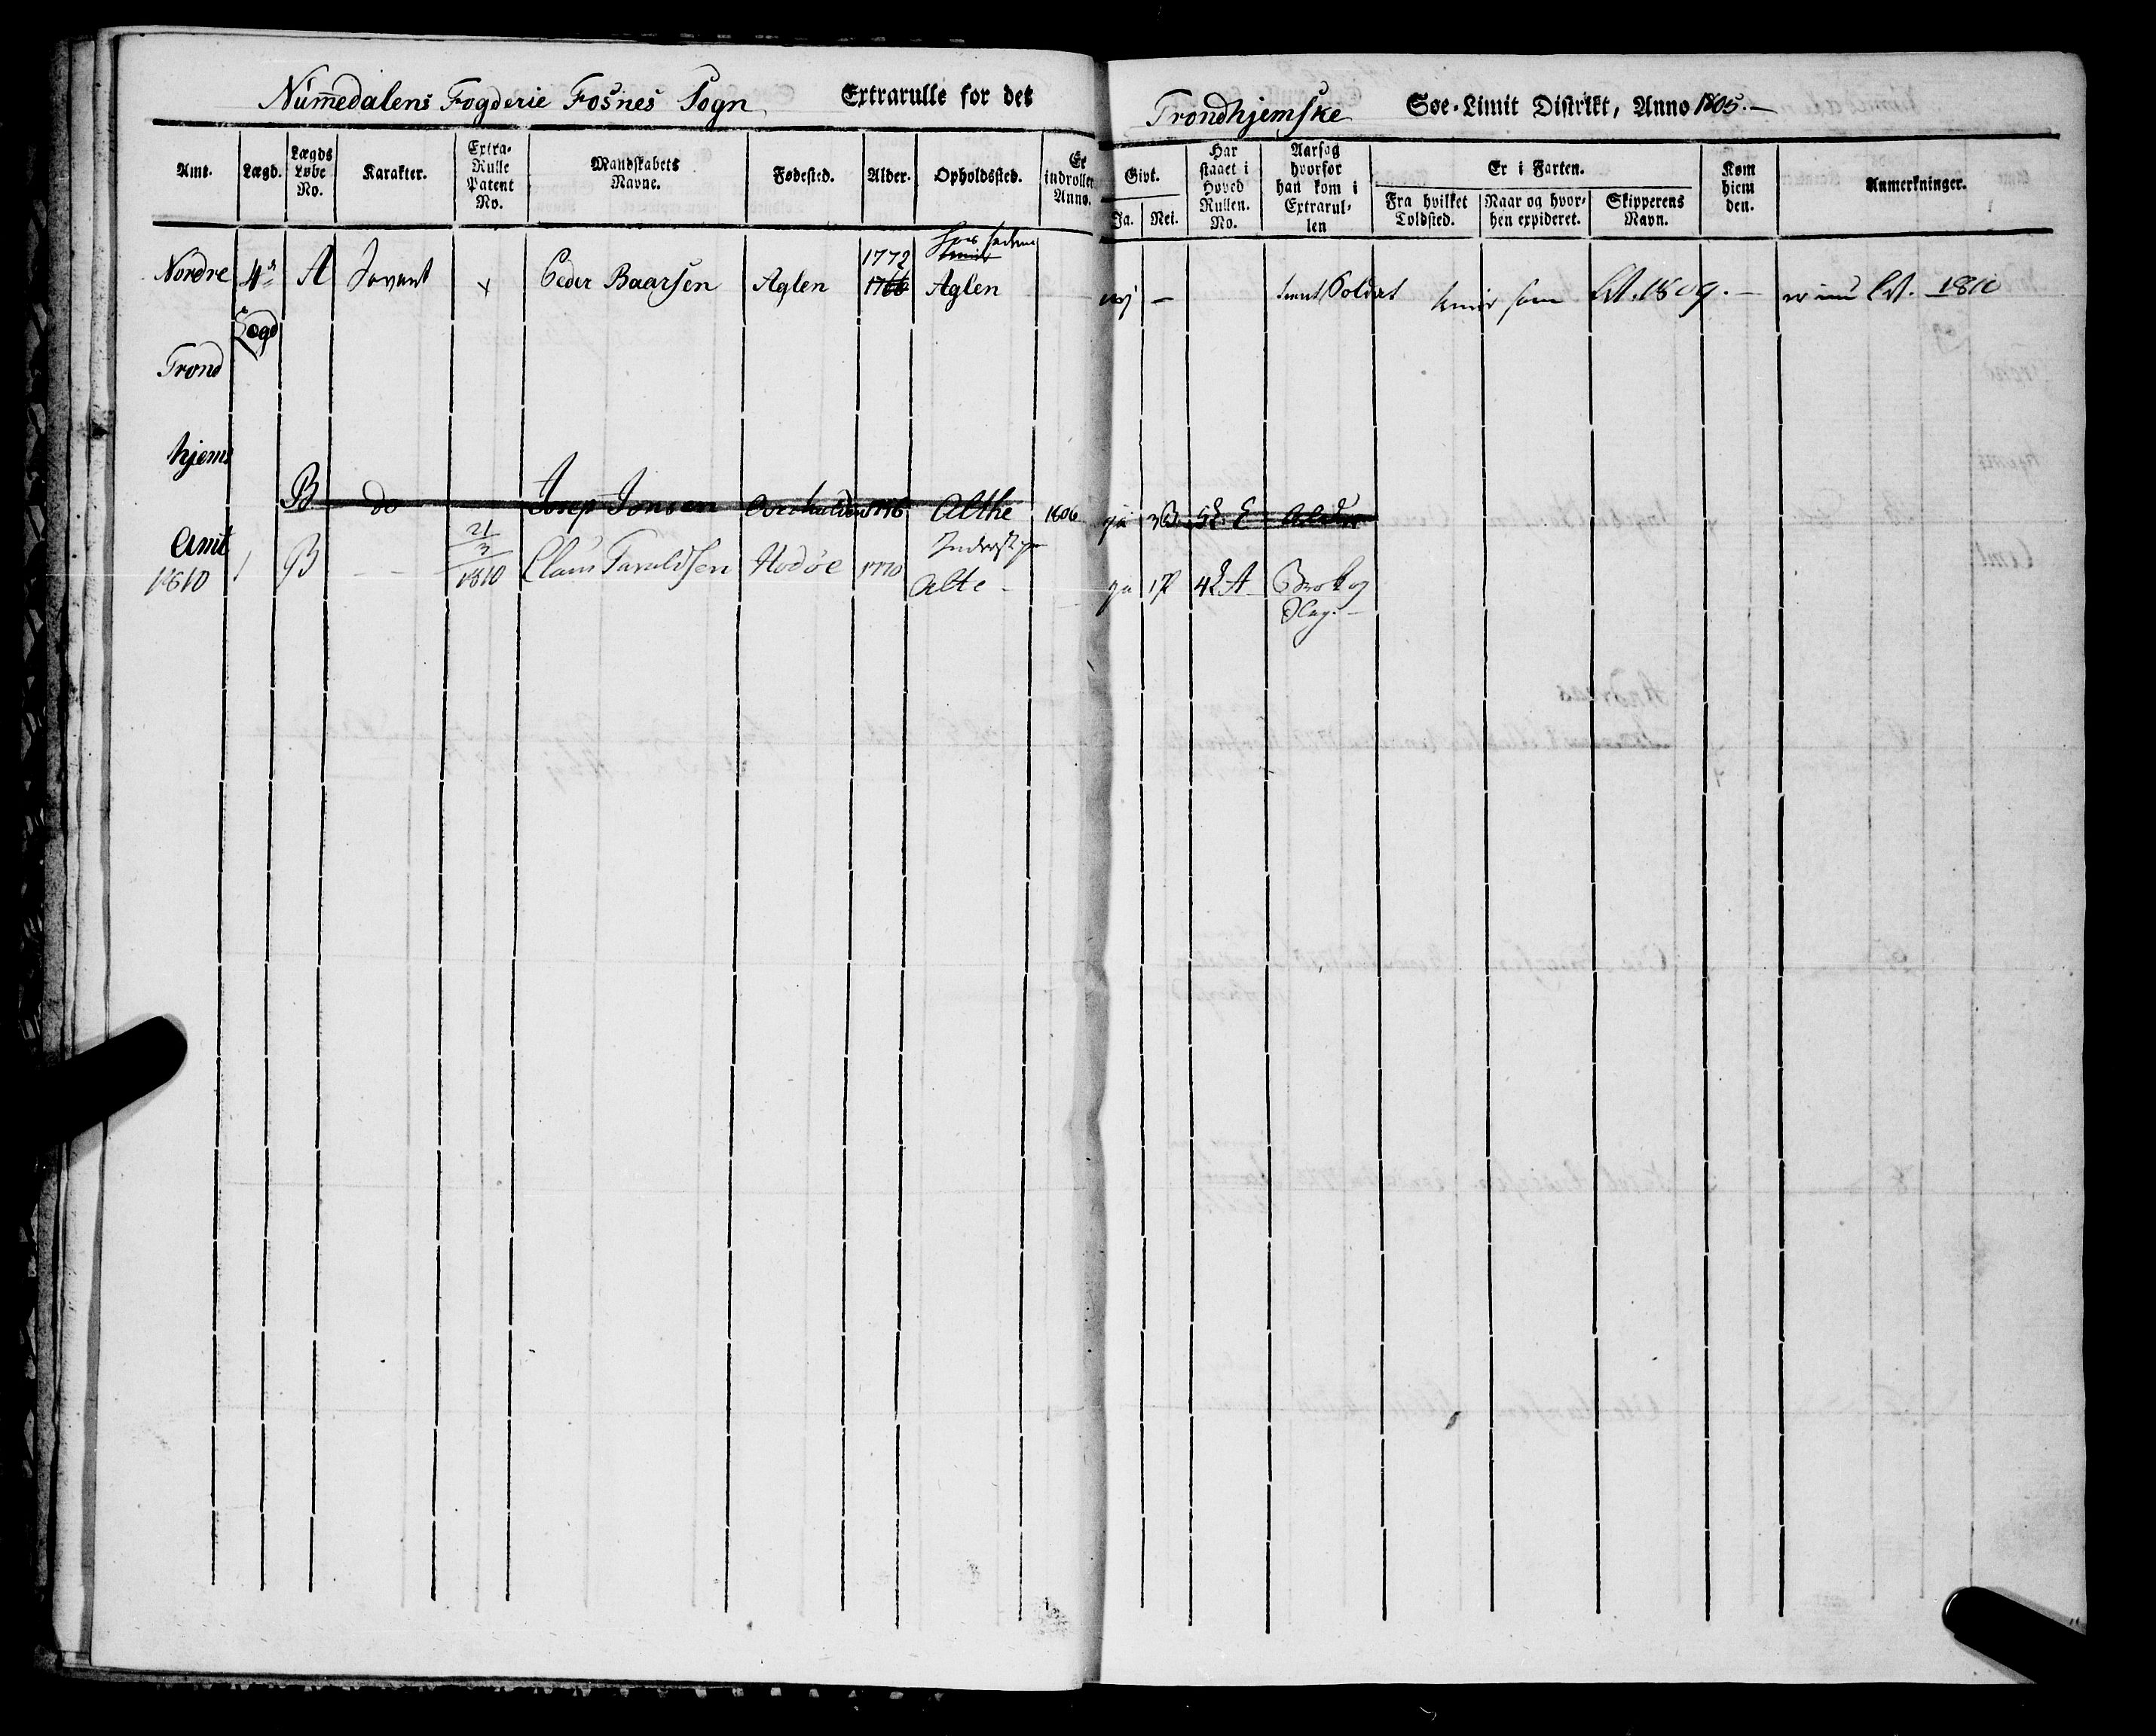 Nummedalens Fogderie Fosnes Sogn Extrarulle for det Trondhjemske Søe-Limit Distrikt, Anno 1805.—
Amt. Lægd. Lægds Løbe No. Karakter. Extra-Rulle Patent No. Mandskabets Navne. Fødested. Alder. Opholdssted. Er indrolleret Anno. Givt. Ja. Nei. Har staaet i Hoved Rullen. No. Aarsag hvorfor han kom i Extrarul-len Er i Farten. Fra hvilket Toldsted. Naar og hvor-hen expideret. Skipperens Navn. Kom hiem den. Anmerkninger.
1772
Nordre 4de A Invent x Peder Baarsen Aglen 1766 Aglen nej — Soldat som 1809. — 1810
Lægd
Trond
hjems
B do Josep Jonsen 1776 Althe 1806 ja 3 5 L. E
Amt
21/3
1810 B — 1810 Claus Taraldsen Hodøe 1770 Alte - ja 17 4 L A Brok og
Slag. —